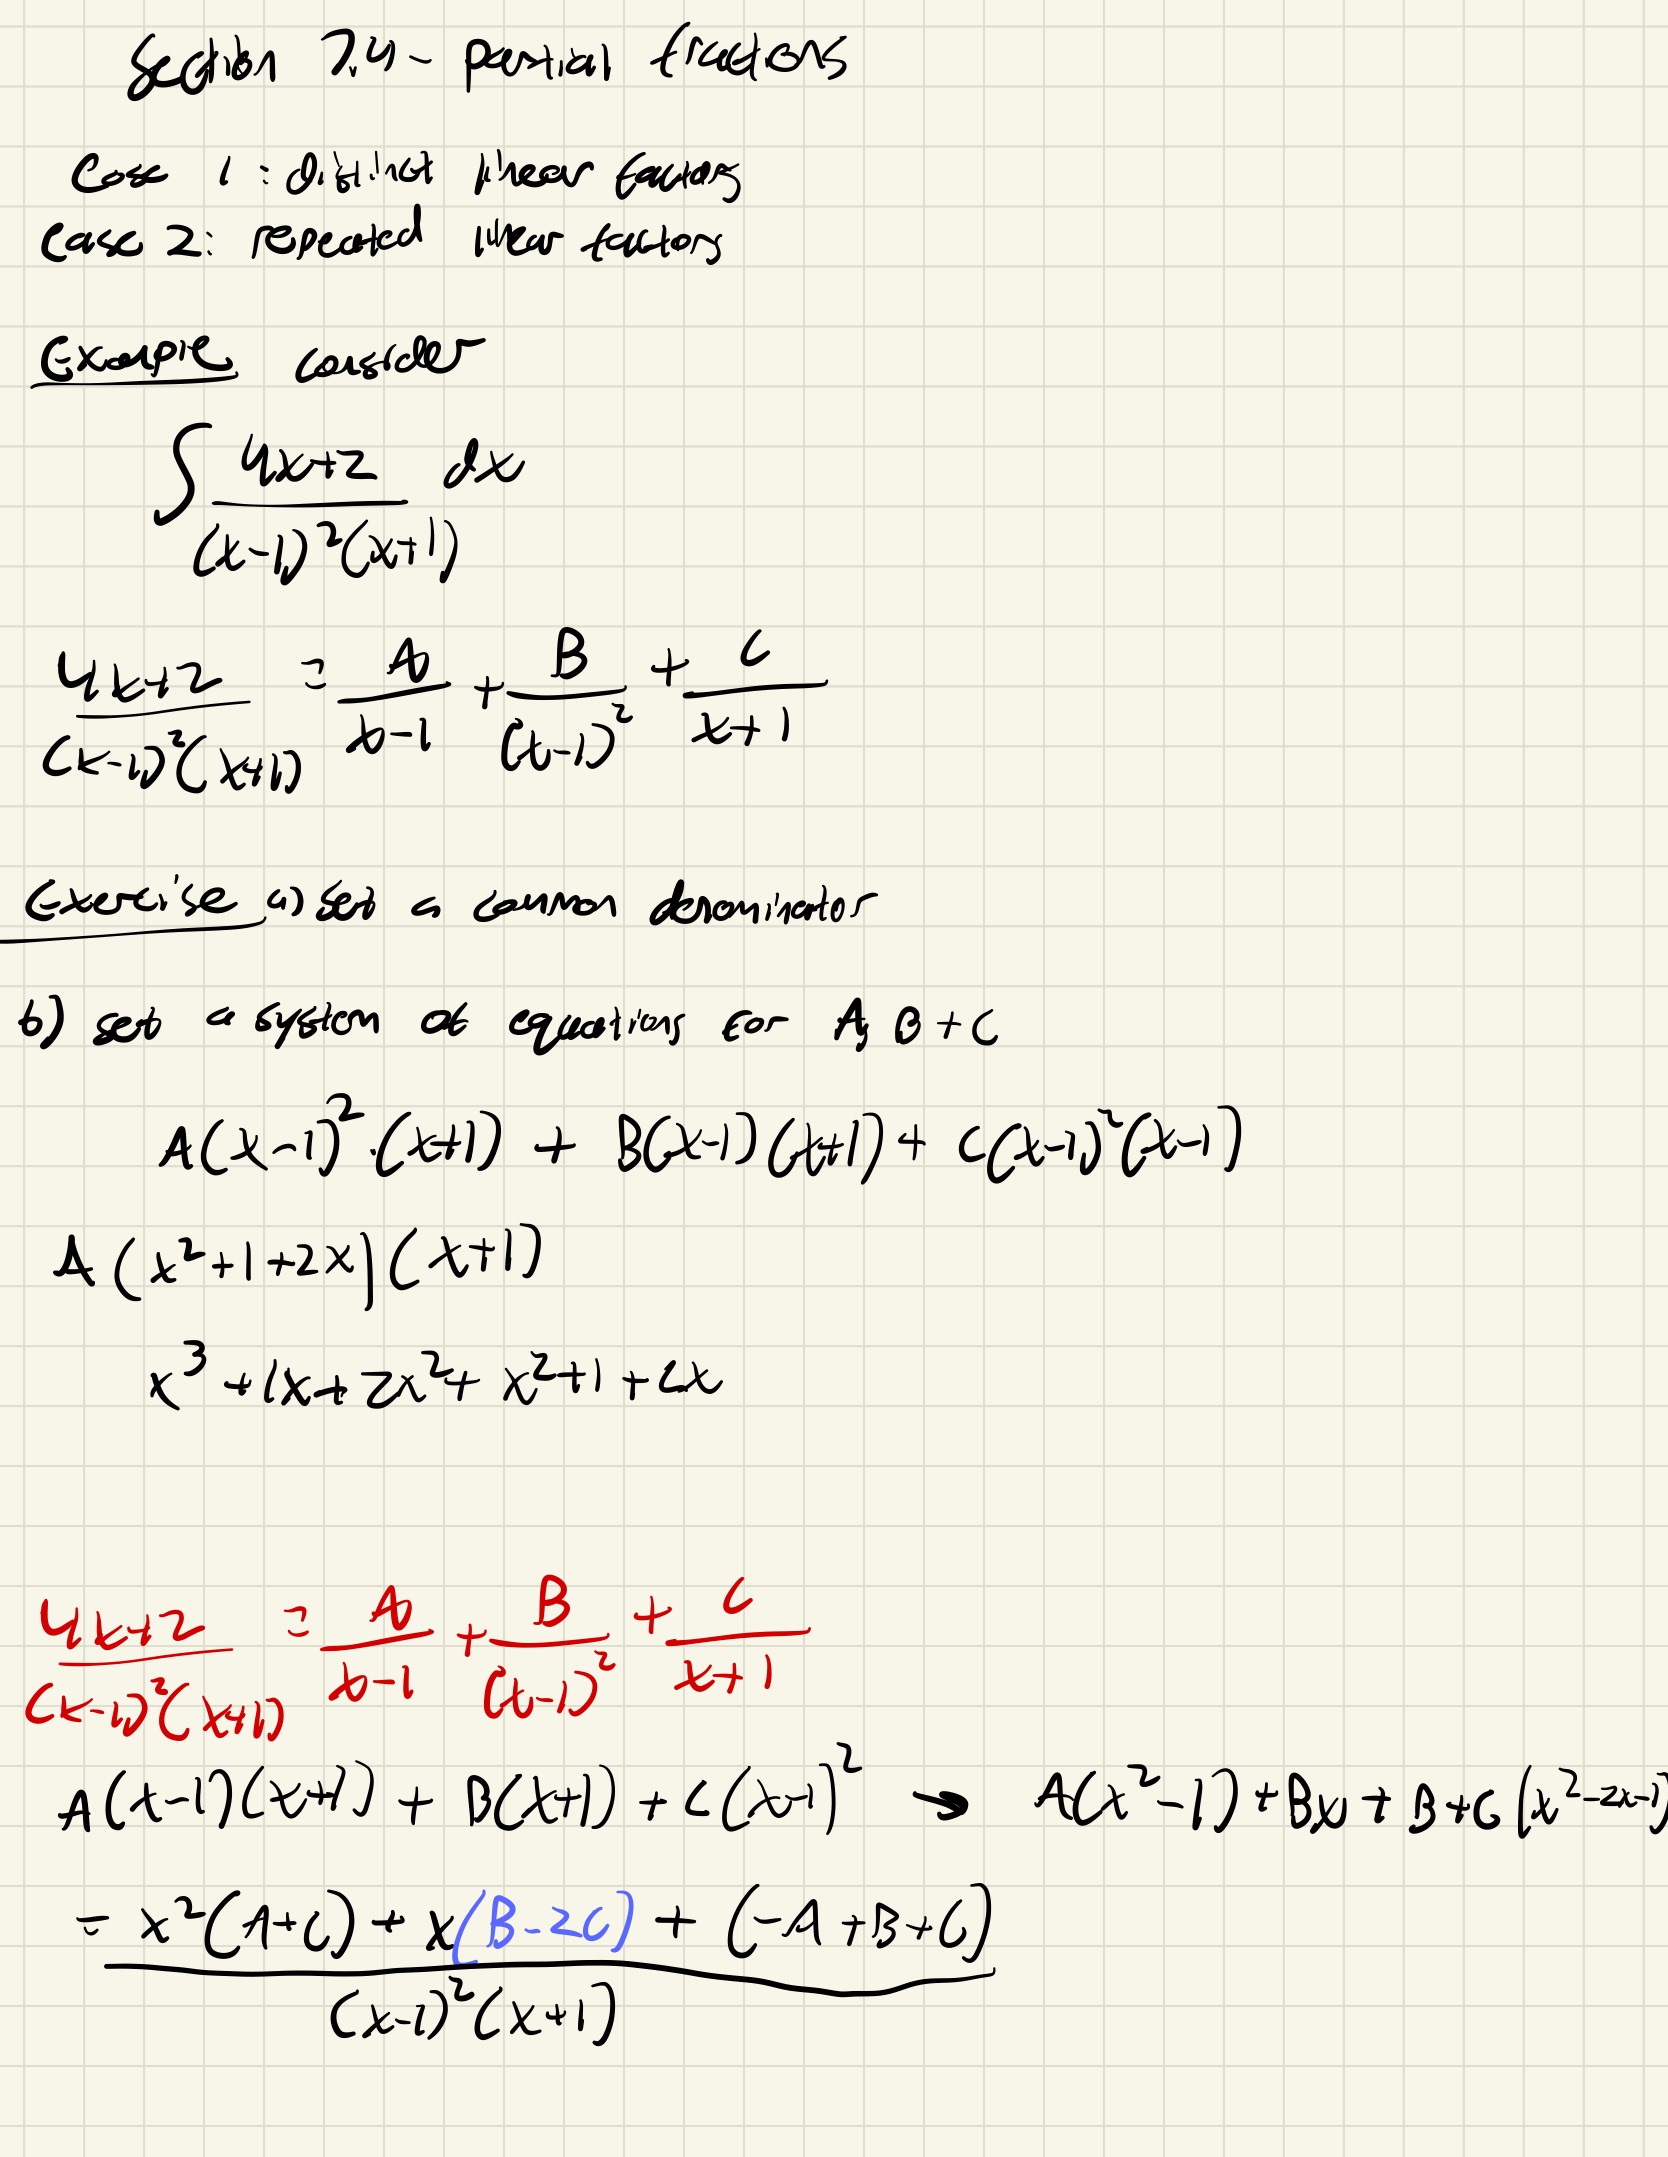 Section 7.4 - partial fractions
Case 1: distinct linear factors
Case 2: repeated linear factors
Example consider
∫ (4x+2)/((x-1)²(x+1)) dx
(4x+2)/((x-1)²(x+1)) = A/(x-1) + B/(x-1)² + C/(x+1)
Exercise a) set a common denominator
b) set a system of equations for A, B + C
A(x-1)²·(x+1) + B(x-1)(x+1) + C(x-1)²(x-1)
A(x²+1+2x)(x+1)
x³+1x+2x²+x²+1+2x
(4x+2)/((x-1)²(x+1)) = A/(x-1) + B/(x-1)² + C/(x+1)
A(x-1)(x+1) + B(x+1) + C(x-1)² → A(x²-1)+Bx+B+C(x²-2x-1)
= (x²(A+C) + x(B-2C) + (-A+B+C))/((x-1)²(x+1))